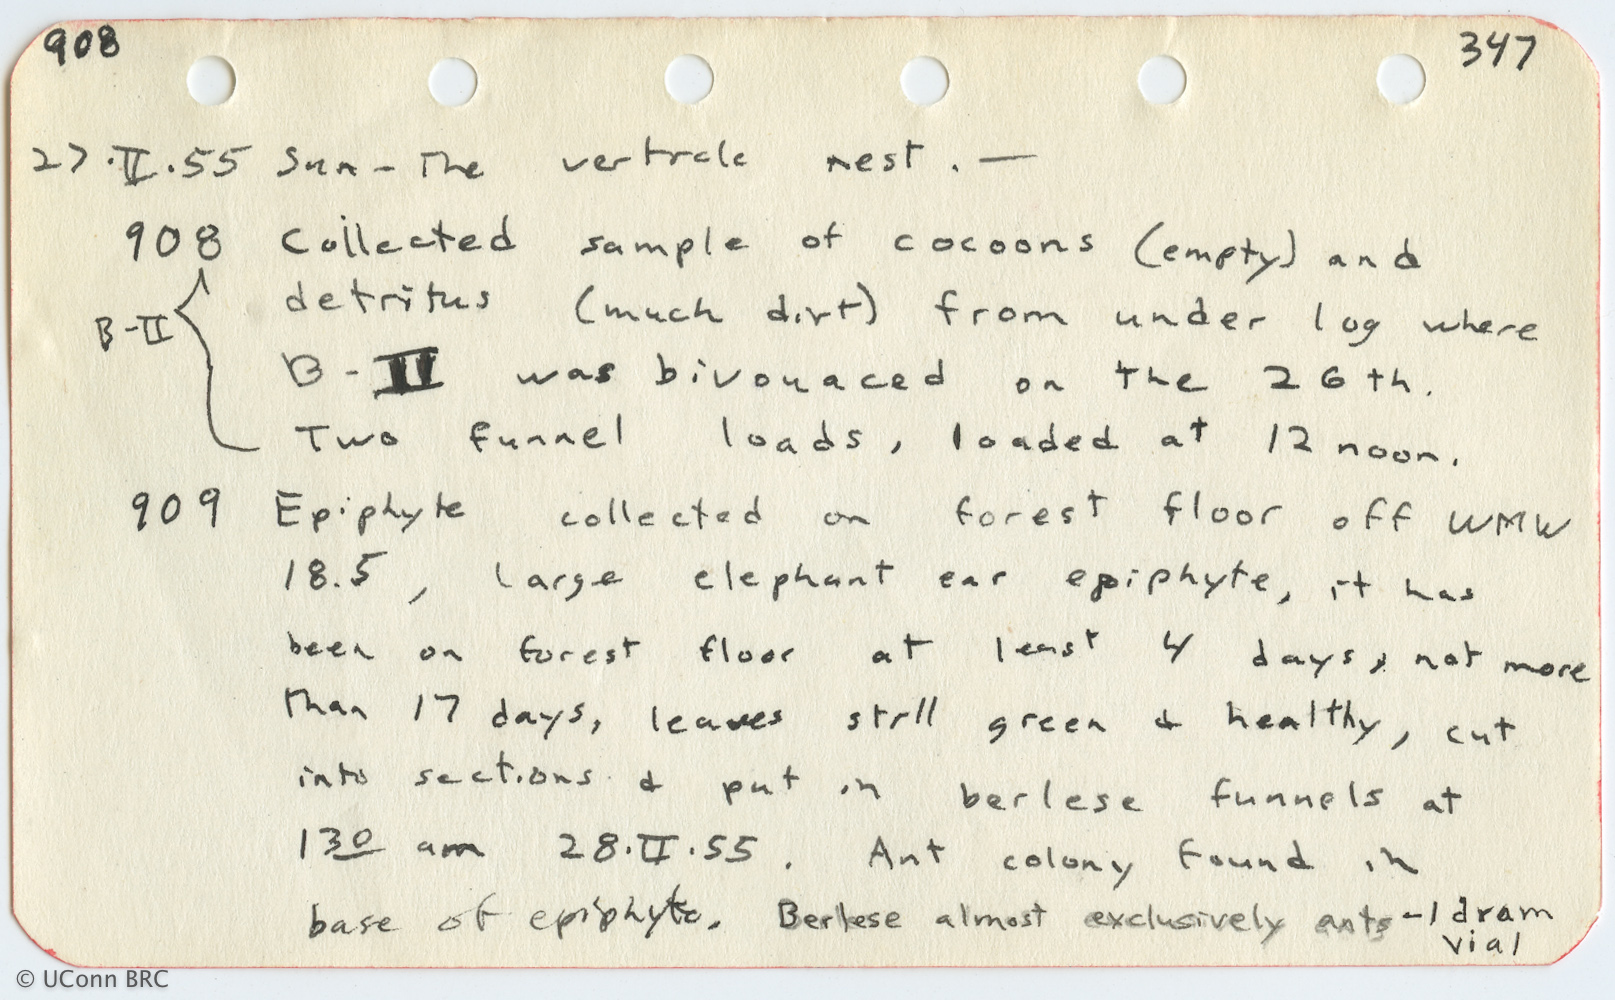 908 347
27.II.55 Sun - The verticle nest. —
908 Collected sample of cocoons (empty) and
detritus (much dirt) from under log where
B-II
B-II was bivouaced on the 26th.
Two funnel loads, loaded at 12 noon.
909 Epiphyte collected on forest floor off WMW
18.5, large elephant ear epiphyte, it has
been on forest floor at least 4 days, not more
than 17 days, leaves still green & healthy, cut
into sections & put in berlese funnels at
130 am 28.II.55. Ant colony found in
base of epiphyte. Berlese almost exclusively ants - 1 dram
vial
© UConn BRC